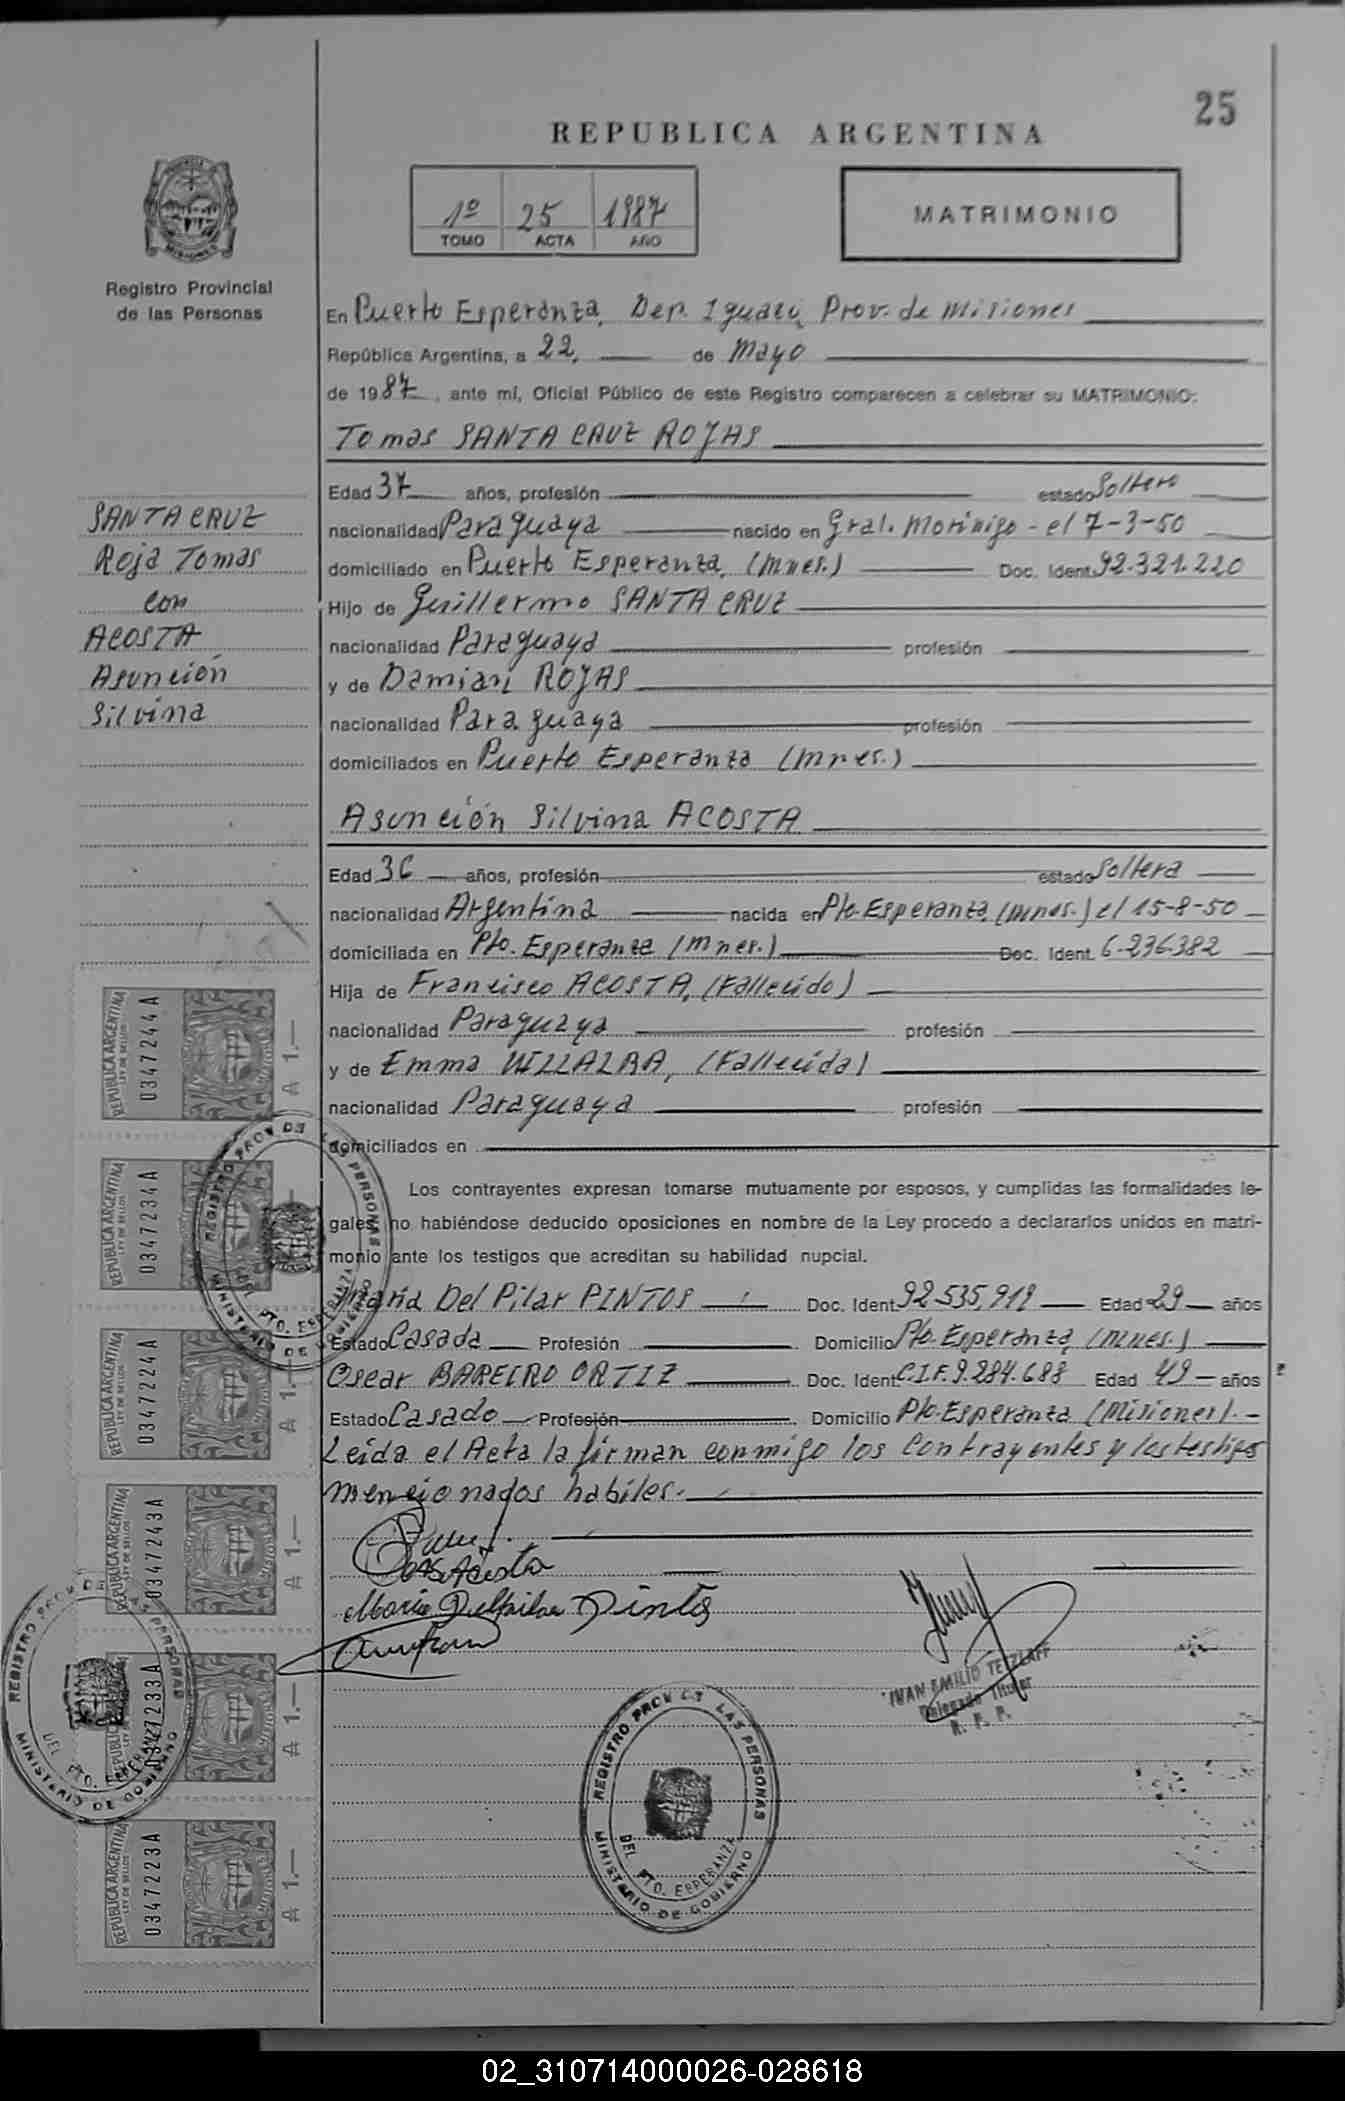 25
REPUBLICA ARGENTINA
1º 25 1987
TOMO ACTA AÑO
MATRIMONIO
Registro Provincial
de las Personas
En Puerto Esperanza, Dep. Iguazú, Prov. de Misiones
República Argentina, a 22, de Mayo
de 1987, ante mí, Oficial Público de este Registro comparecen a celebrar su MATRIMONIO:
Tomas SANTA CRUZ ROJAS
Edad 37 años, profesión estado Soltero
nacionalidad Paraguaya nacido en Gral. Morinigo - el 7-3-50
domiciliado en Puerto Esperanza, (Mnes.) Doc. Ident. 92.321.220
Hijo de Guillermo SANTA CRUZ
nacionalidad Paraguaya profesión
y de Damiani ROJAS
nacionalidad Paraguaya profesión
domiciliados en Puerto Esperanza (Mnes.)
SANTA CRUZ
Roja Tomas
con
ACOSTA
Asunción
Silvina
Asunción Silvina ACOSTA
Edad 36 años, profesión estado Soltera
nacionalidad Argentina nacida en Pto. Esperanza, (Mnes.) el 15-8-50
domiciliada en Pto. Esperanza (Mnes.) Doc. Ident. 6.236.382
Hija de Francisco ACOSTA, (Fallecido)
nacionalidad Paraguaya profesión
y de Emma VILLALBA, (Fallecida)
nacionalidad Paraguaya profesión
domiciliados en
Los contrayentes expresan tomarse mutuamente por esposos, y cumplidas las formalidades le-
gales no habiéndose deducido oposiciones en nombre de la Ley procedo a declararlos unidos en matri-
monio ante los testigos que acreditan su habilidad nupcial.
Maria Del Pilar PINTOS Doc. Ident. 92.535.919 Edad 29 años
Estado Casada Profesión Domicilio Pto. Esperanza, (Mnes.)
Oscar BAREIRO ORTIZ Doc. Ident. C.I.F. 9.284.688 Edad 49 años
Estado Casado Profesión Domicilio Pto. Esperanza (Misiones).-
Leída el Acta la firman conmigo los Contrayentes y los testigos
mencionados habiles.
Maria Delpilar Pintos
JUAN EMILIO TETZLAFF
Delegado Titular
R. P. P.
REGISTRO PROV. DE LAS PERSONAS
DEL PTO. ESPERANZA
MINISTERIO DE GOBIERNO
REPUBLICA ARGENTINA
LEY DE SELLOS
03472444A
A 1.—
REPUBLICA ARGENTINA
LEY DE SELLOS
0347234A
REPUBLICA ARGENTINA
LEY DE SELLOS
0347224A
A 1.—
REPUBLICA ARGENTINA
LEY DE SELLOS
0347243A
A 1.—
REPUBLICA ARGENTINA
0347233A
A 1.—
REPUBLICA ARGENTINA
LEY DE SELLOS
0347223A
A 1.—
REGISTRO PROV. DE LAS PERSONAS
DEL PTO. ESPERANZA
MINISTERIO DE GOBIERNO
REGISTRO PROV. DE LAS PERSONAS
DEL PTO. ESPERANZA
MINISTERIO DE GOBIERNO
02_310714000026-028618